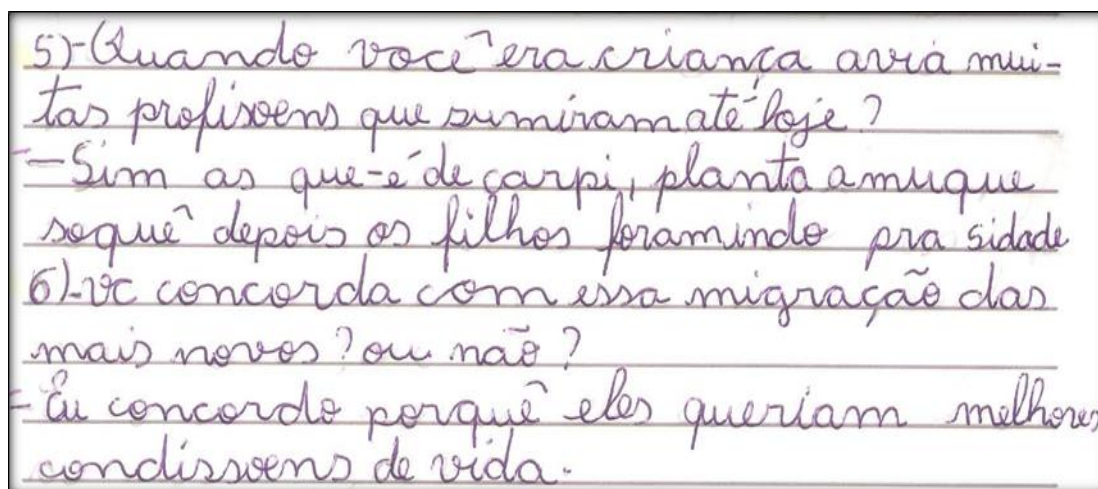 5)-Quando você era criança avia mui-
tas profisoens que sumiram até hoje?
-Sim as que-é de çarpi, planta amuque
soquê depois os filhos foramindo pra sidade
6)-vc concorda com essa migração das
mais novos? ou não?
-Eu concordo porquê eles queriam melhores
condissoens de vida.